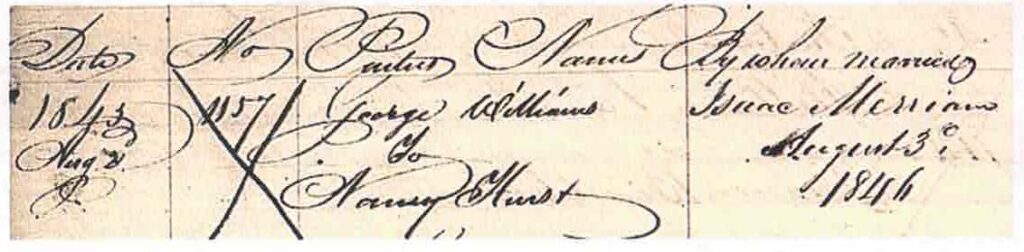 Date No Parties Names By whom married
1843 1157 George Williams Isaac Merriam
Aug 2d. To August 3d
Nancy Hurst 1846